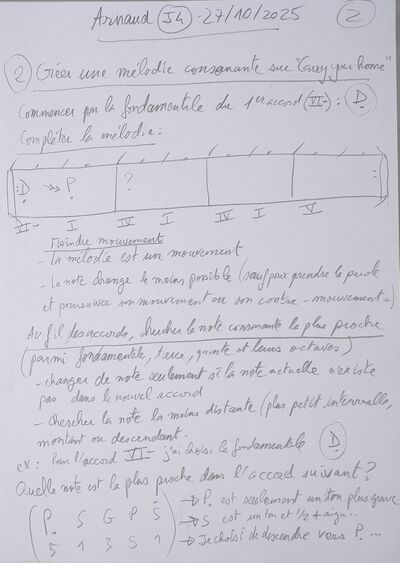 Arnaud J4 - 27/10/2025
2
2 Créer une mélodie consonante sur "Carry you Home"
Commencer par la fondamentale du 1er accord (VI-) : D
Compléter la mélodie :
:D → P. ? :
VI- I IV I IV I V
Moindre mouvement
- La mélodie est un mouvement
- La note change le moins possible (sauf pour prendre la parole
et poursuivre son mouvement ou son contre-mouvement)
Au fil des accords, chercher la note consonante la plus proche
(parmi fondamentale, tierce, quinte et leurs octaves)
- changer de note seulement si la note actuelle n'existe
pas dans le nouvel accord
- chercher la note la moins distante (plus petit intervalle,
montant ou descendant.
ex : Pour l'accord VI- j'ai choisi la fondamentale D
Quelle note est la plus proche dans l'accord suivant ?
P. S G P S → P. est seulement un ton plus grave
5 1 3 5 1 → S est un ton et 1/2 + aigu...
→ Je choisi de descendre vers P. ...